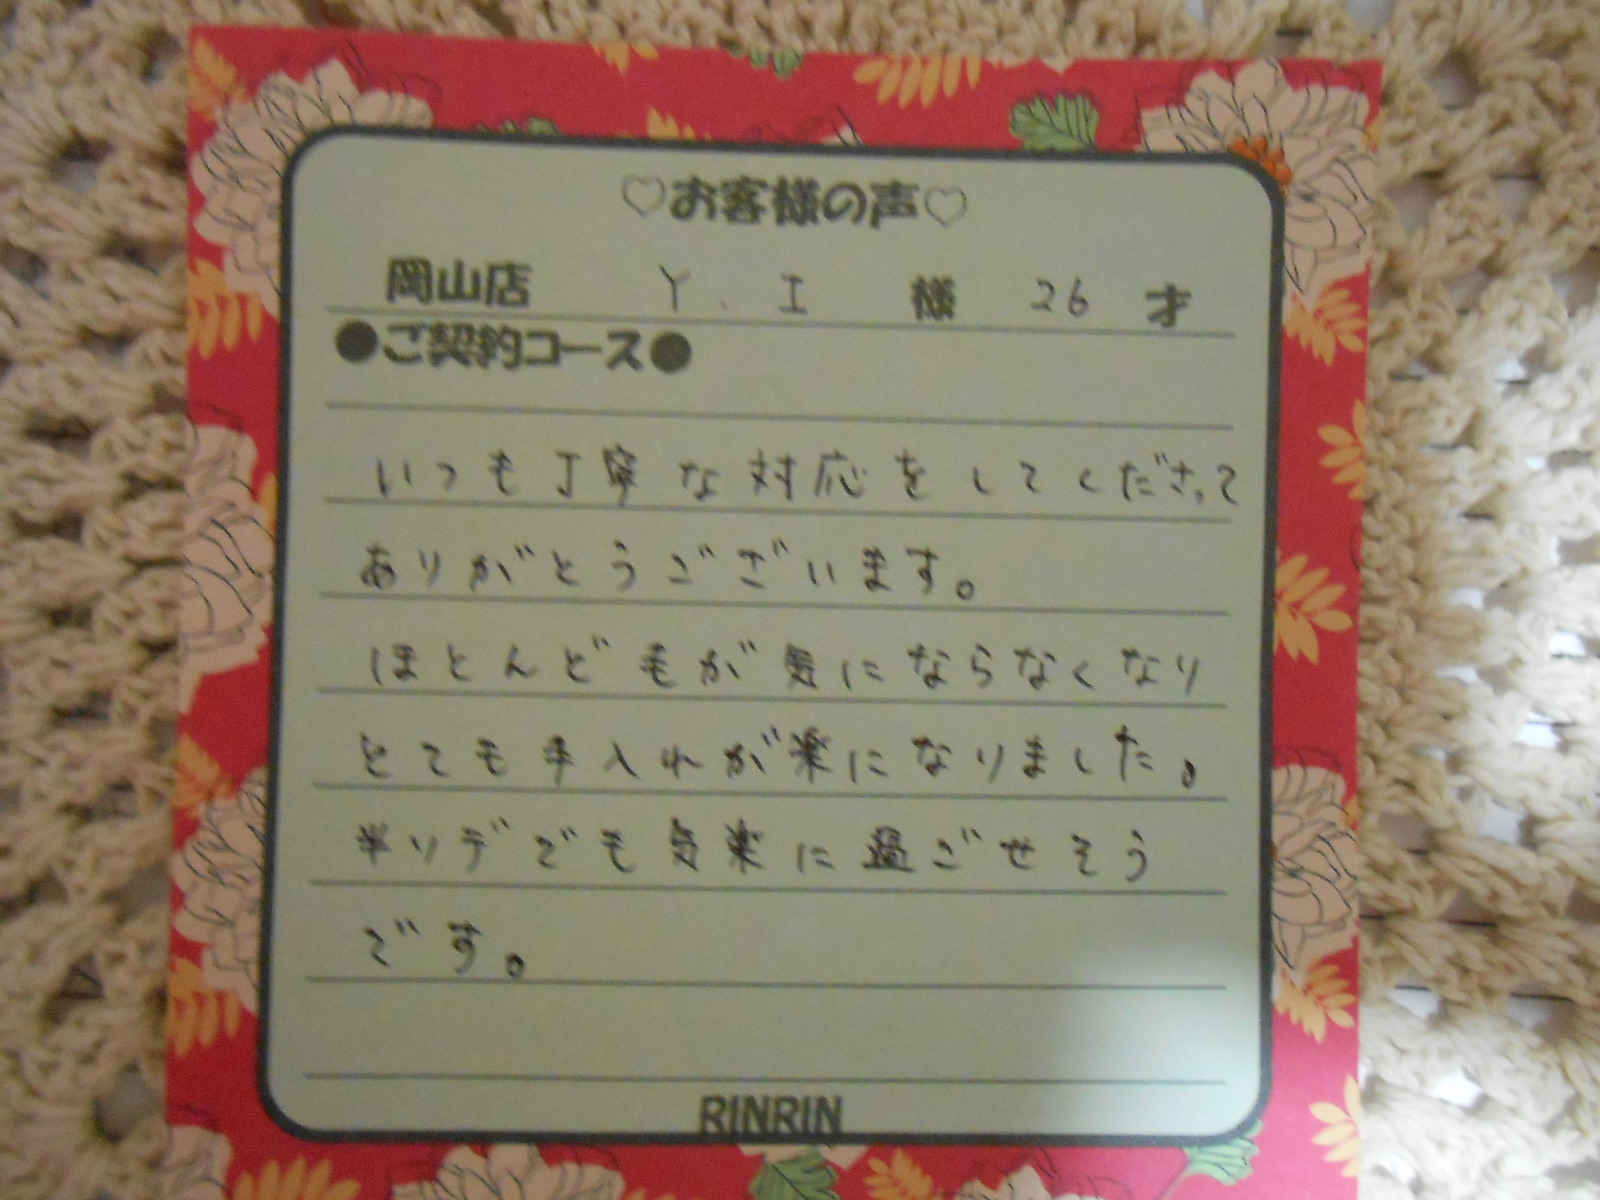 ♡お客様の声♡
岡山店 Y.I 様 26 才
●ご契約コース●
いつも丁寧な対応をしてくださって
ありがとうございます。
ほとんど毛が気にならなくなり
とても手入れが楽になりました。
半ソデでも気楽に過ごせそう
です。
RINRIN